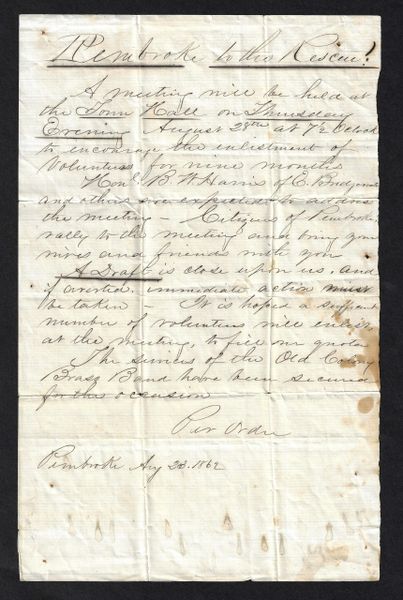 Pembroke to the Rescue!
A meeting will be held at
the Town Hall on Thursday
Evening August 28th at 7½ Oclock
to encourage the enlistment of
Volunteers for nine months
Hon. B W Harris of E. Bridgewa
and others are expected to address
the meeting - Citizens of Pembroke,
rally to the meeting and bring your
wives and friends with you
A Draft is close upon us, and
if averted, immediate action must
be taken - It is hoped a sufficient
number of volunteers will enlist
at the meeting, to fill our quota
The services of the Old Colony
Brass Band have been secured
for the occasion
Per Order
Pembroke Aug 23. 1862